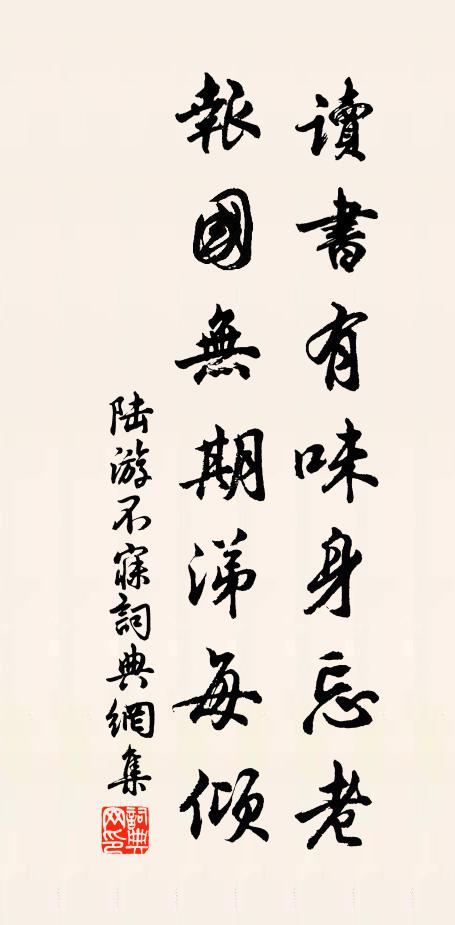 讀書有味身忘老
報國無期涕每傾
陆游不寐詞典網集
詞典網印